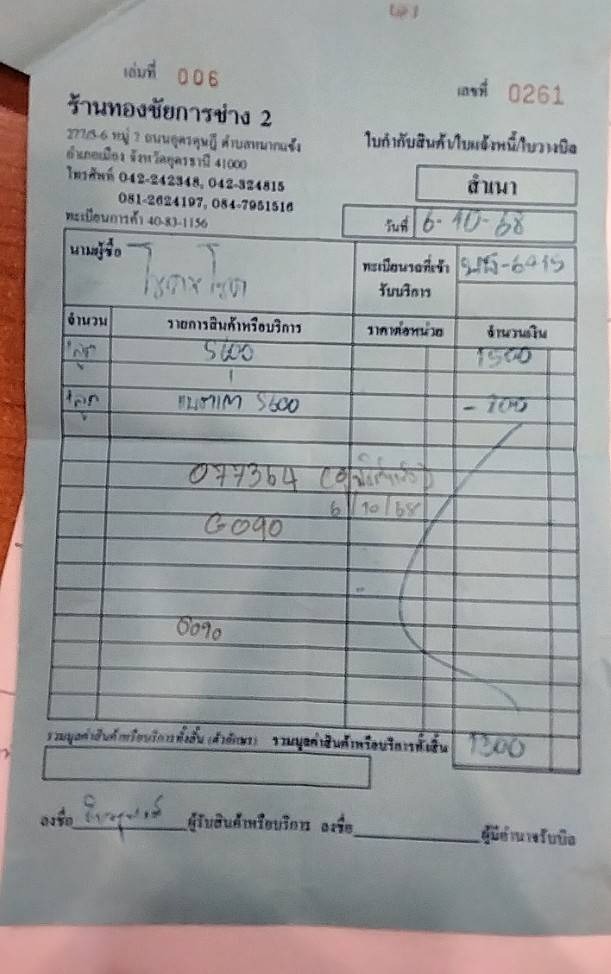 เล่มที่ 006
เลขที่ 0261
ร้านทองชัยการช่าง 2
277/5-6 หมู่ 7 ถนนอุดรดุษฎี ตำบลหมากแข้ง
อำเภอเมือง จังหวัดอุดรธานี 41000
โทรศัพท์ 042-242348, 042-324815
081-2624197, 084-7951516
ทะเบียนการค้า 40-83-1156
ใบกำกับสินค้า/ใบแจ้งหนี้/ใบวางบิล
สำเนา
วันที่ 6-10-68
นามผู้ซื้อ
ทะเบียนรถที่เข้ารับบริการ
จำนวน รายการสินค้าหรือบริการ ราคาต่อหน่วย จำนวนเงิน
1 ลูก S600 1500
1 ลูก S600
077364
6/10/68
G090
รวมมูลค่าสินค้าหรือบริการทั้งสิ้น (ตัวอักษร) รวมมูลค่าสินค้าหรือบริการทั้งสิ้น 1300
ลงชื่อ ผู้รับสินค้าหรือบริการ ลงชื่อ ผู้มีอำนาจรับบิล